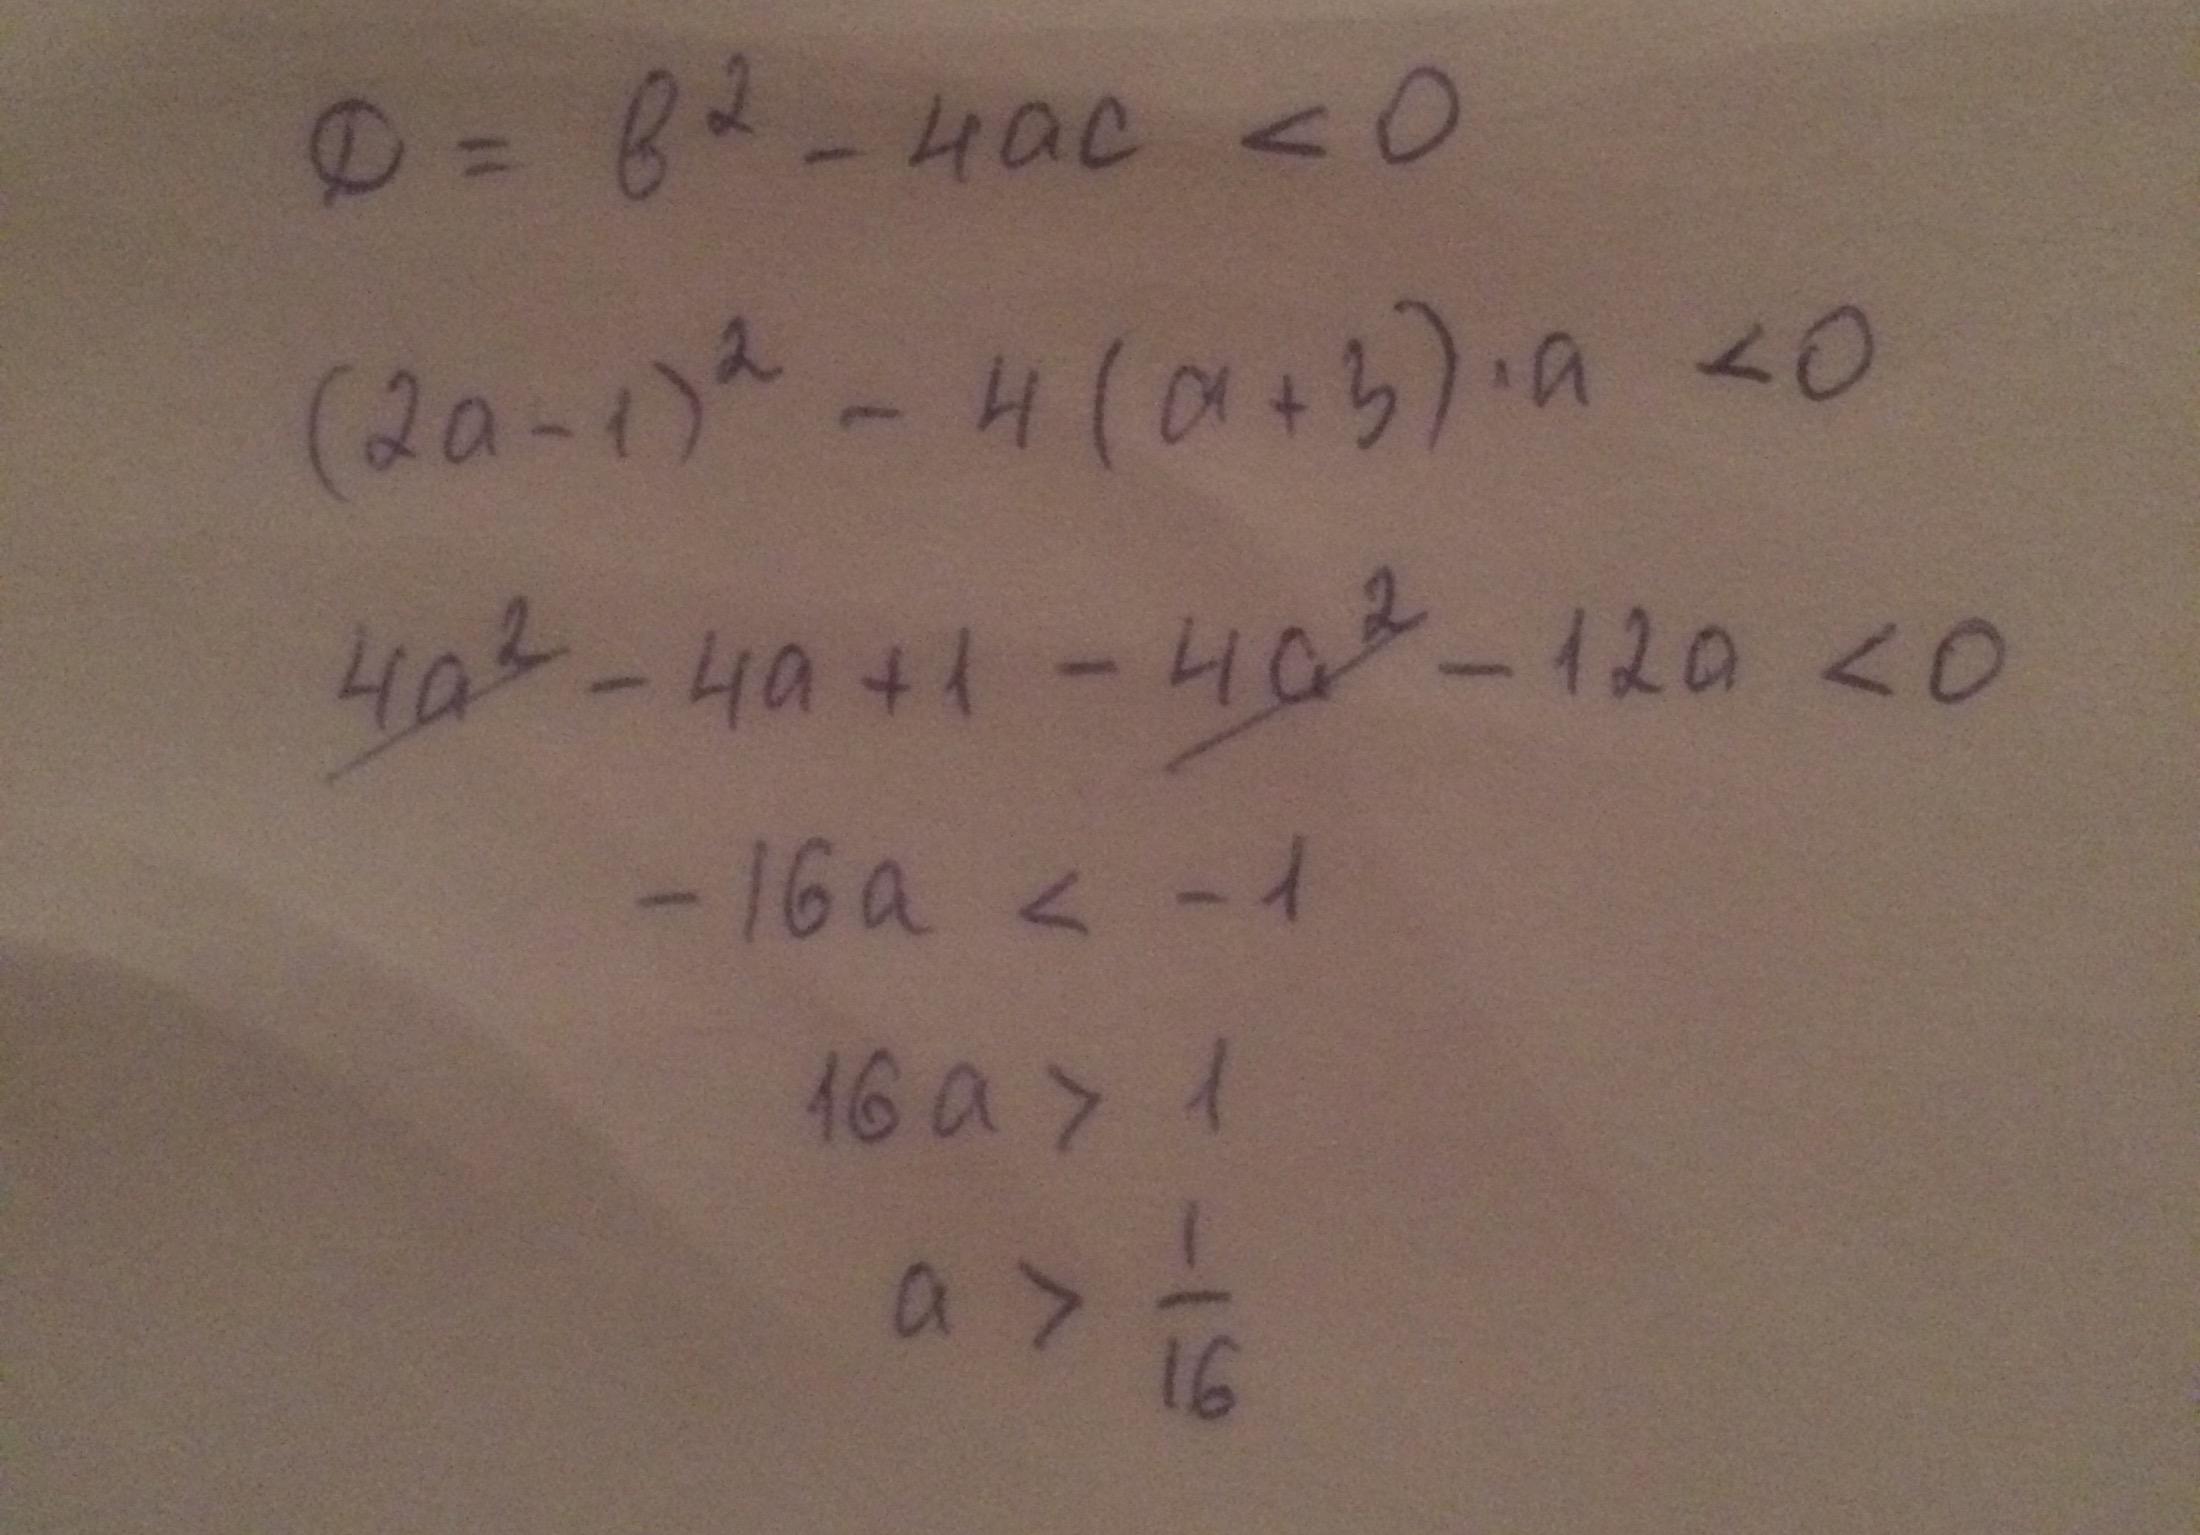 D = b² - 4ac < 0
(2a-1)² - 4(a+3)·a < 0
4a² - 4a + 1 - 4a² - 12a < 0
-16a < -1
16a > 1
a > 1/16